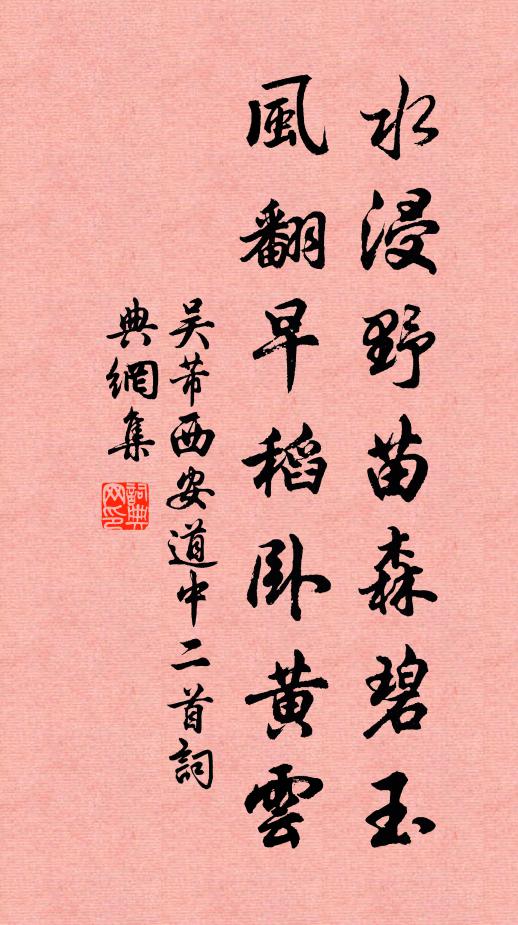 水浸野苗森碧玉
風翻早稻卧黃雲
吴芾西安道中二首詞
典網集
詞典网印